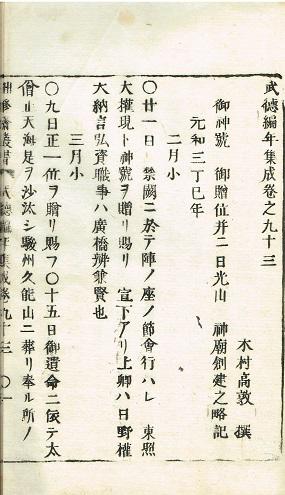 武徳編年集成巻之九十三
木村高敦 撰
御神號 御贈位并ニ日光山 神廟創建之略記
元和三丁巳年
二月小
〇廿一日 禁闕ニ於テ陣ノ座ノ節會行ハレ 東照
大權現ト神號ヲ贈リ賜リ 宣下アリ上卿ハ日野權
大納言弘資職事ハ廣橋辨兼賢也
三月小
〇九日正一位ヲ贈リ賜フ〇十五日御遺命ニ依テ太
僧正天海是ヲ沙汰シ駿州久能山ニ葬リ奉ル所ノ
武徳編年集成巻九十三 〇一